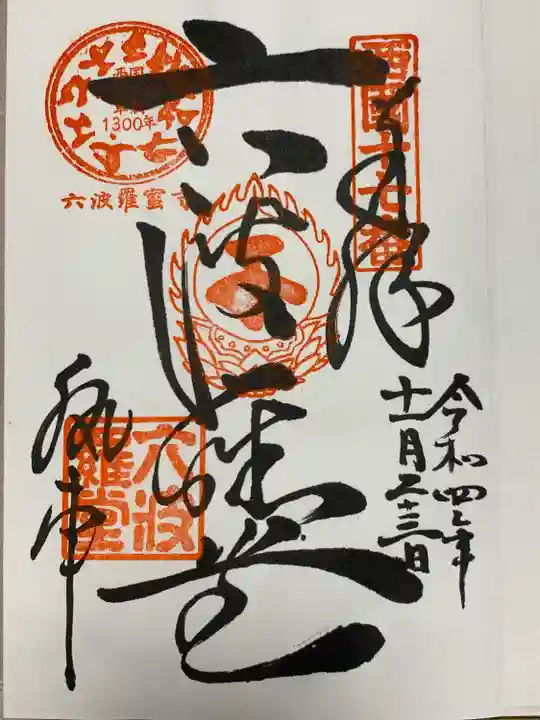 西国十七番
奉拝
令和四年
十一月二十三日
六波羅堂
西国
1300年
六波羅蜜寺
六波羅堂